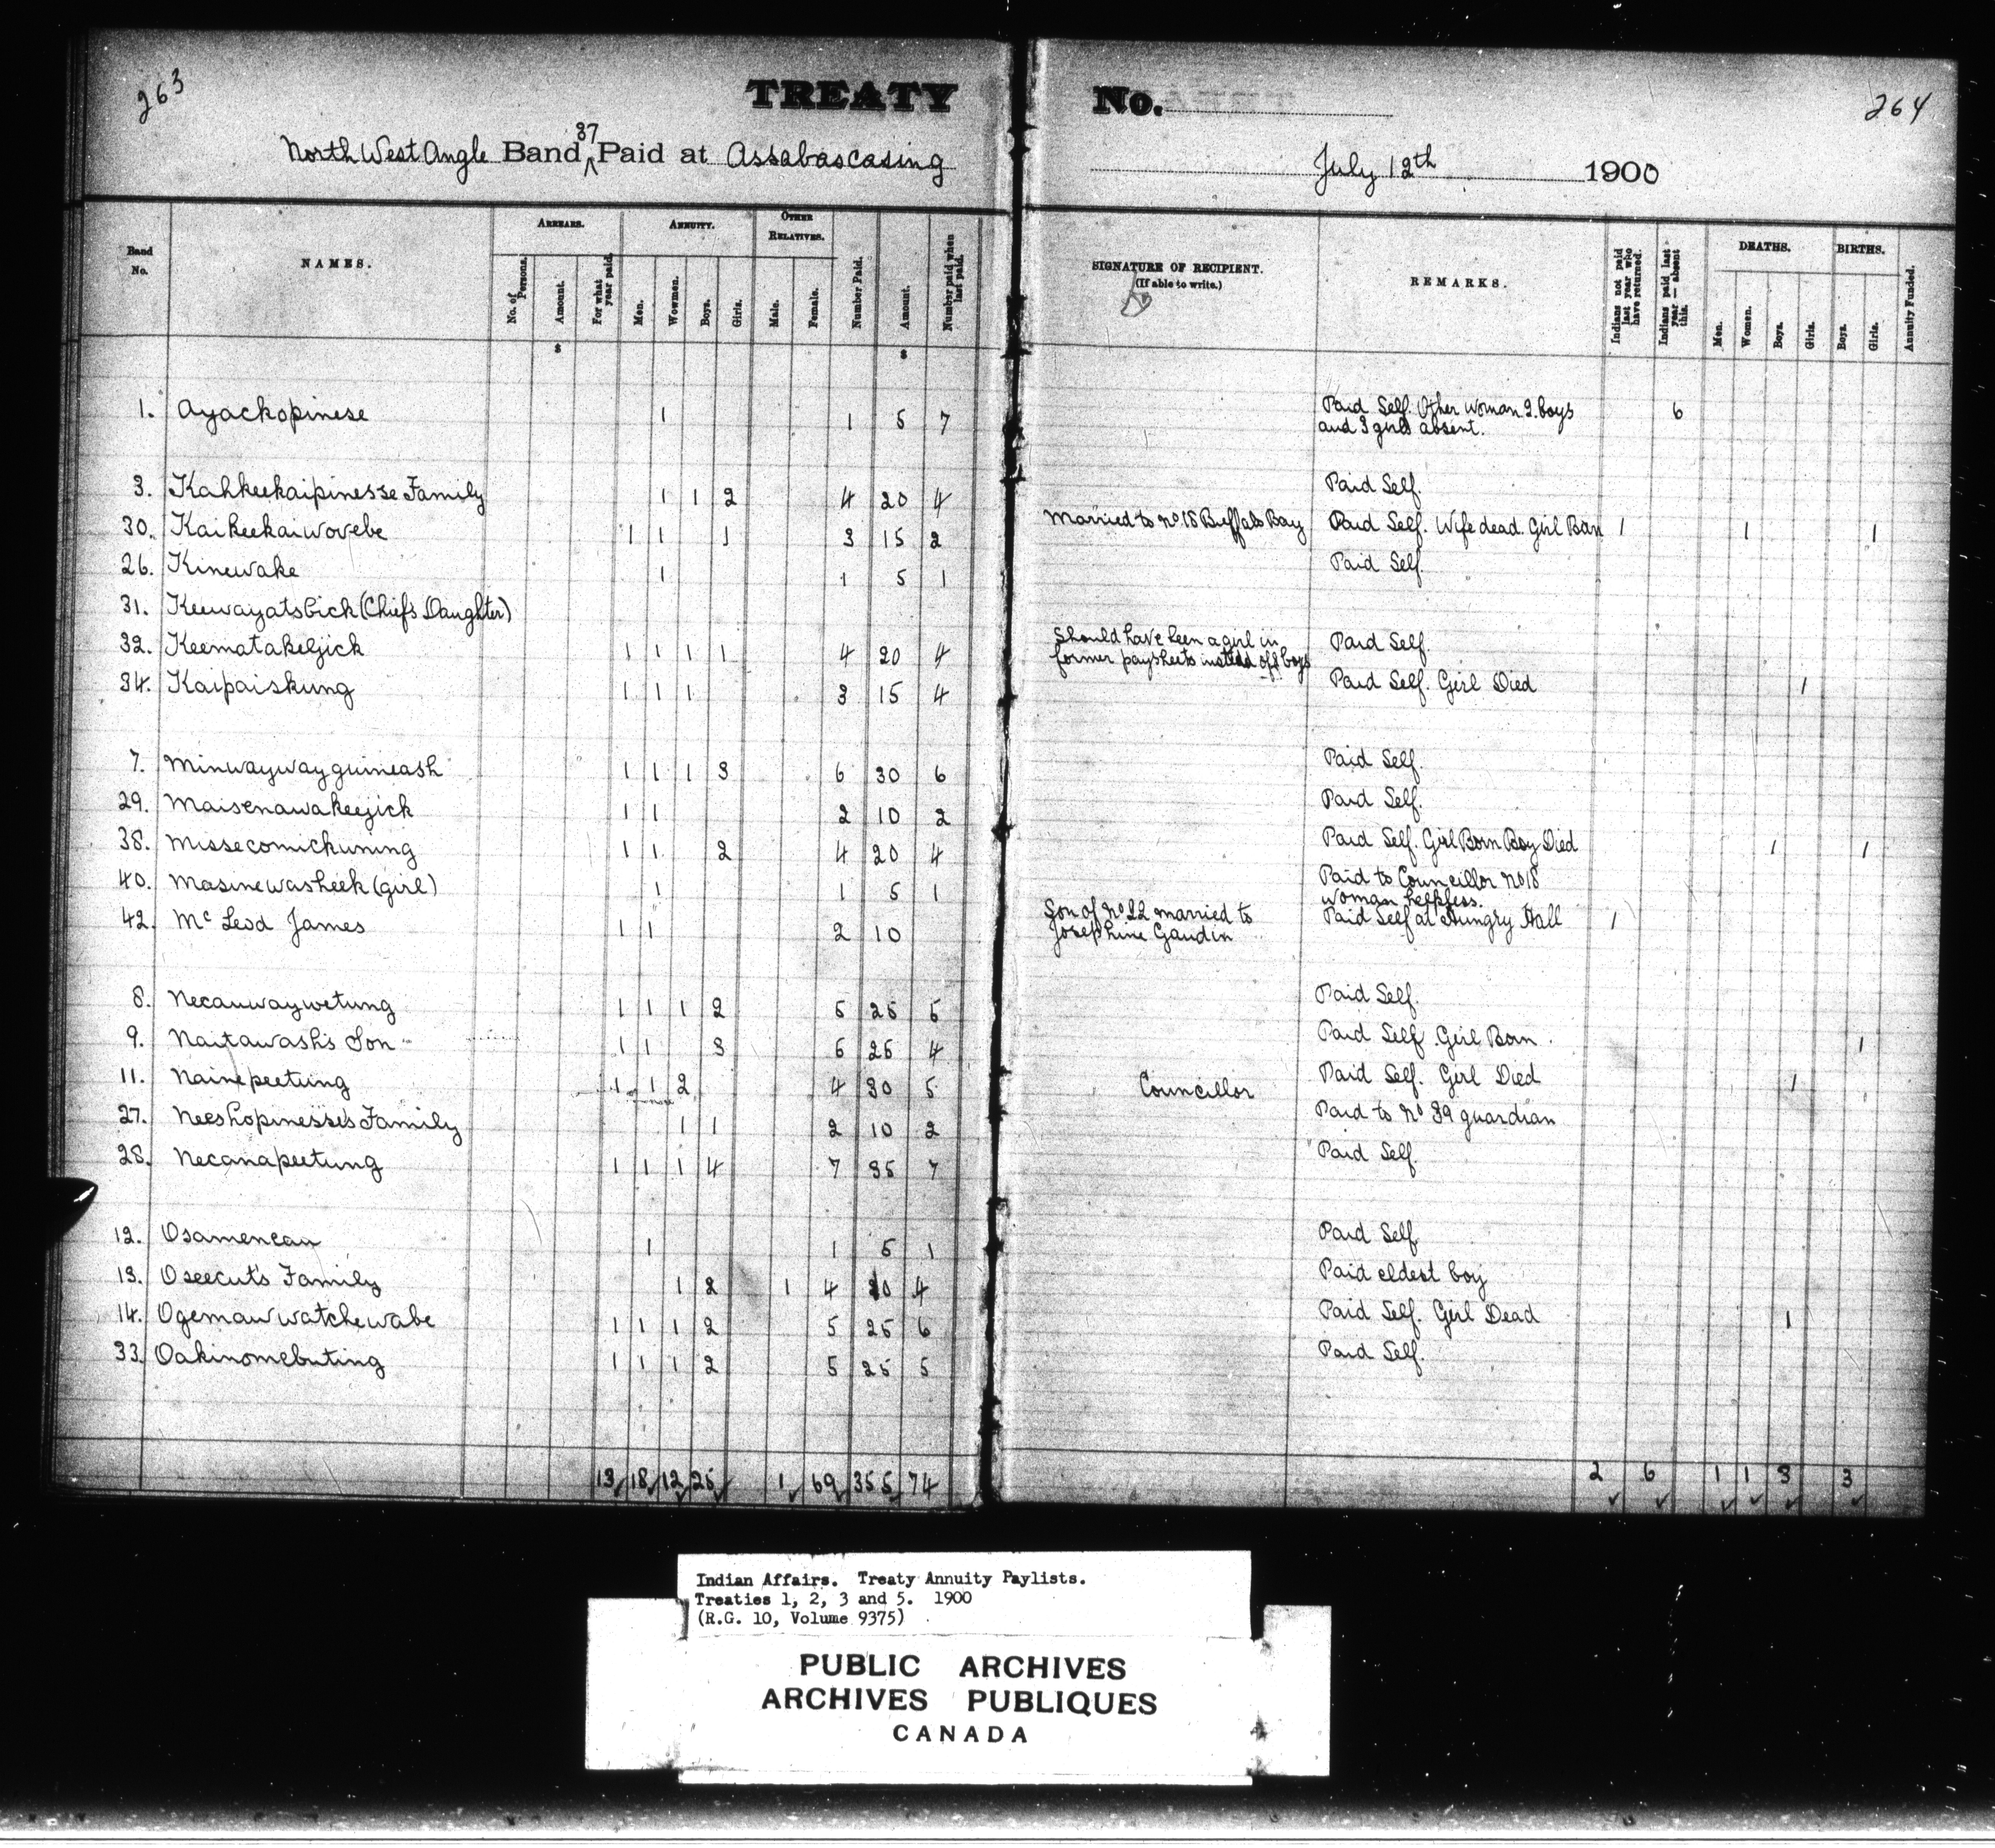 263
TREATY
No.
264
North West Angle Band 37 Paid at Assabascasing
July 12th 1900
Band No.
NAMES.
ARREARS.
No. of Persons.
Amount.
For what year paid.
ANNUITY.
Men.
Women.
Boys.
Girls.
OTHER RELATIVES.
Male.
Female.
Number Paid.
Amount.
Number paid when last paid.
SIGNATURE OF RECIPIENT.
(If able to write.)
REMARKS.
Indians not paid last year who have returned.
Indians paid last year — absent this.
DEATHS.
Men.
Women.
Boys.
Girls.
BIRTHS.
Boys.
Girls.
Annuity Funded.
$ $
1. Ayackopinese 1 1 5 7 Paid Self. Other woman 2 boys and 3 girls absent. 6
3. Kahkeekaipinesse Family 1 1 2 4 20 4 Paid Self.
30. Kaikeekaiwovebe 1 1 1 3 15 2 Married to No 18 Buffalo Bay Paid Self. Wife dead. Girl Born 1 1 1
26. Kinewake 1 1 5 1 Paid Self.
31. Keewayatsbick (Chiefs Daughter)
32. Keematakeejick 1 1 1 1 4 20 4 Should have been a girl in former paysheets instead of boys Paid Self.
34. Kaipaiskung 1 1 1 3 15 4 Paid Self. Girl Died 1
7. Minwaywayguineash 1 1 1 3 6 30 6 Paid Self.
29. Maisenawakeejick 1 1 2 10 2 Paid Self.
38. Missecomickuning 1 1 2 4 20 4 Paid Self. Girl Born Boy Died 1 1
40. Masinewasheek (girl) 1 1 5 1 Paid to Councillor No 18 woman helpless.
42. Mc Leod James 1 1 2 10 Son of No 22 married to Josephine Gaudin Paid Self at Hungry Hall 1
8. Necanwaywetung 1 1 1 2 5 25 5 Paid Self.
9. Naitawash's Son 1 1 3 5 25 4 Paid Self. Girl Born. 1
11. Nainepeetung 1 1 2 4 30 5 Councillor Paid Self. Girl Died 1
27. Neeshopinesse's Family 1 1 2 10 2 Paid to No 39 guardian
28. Necanapeetung 1 1 1 4 7 35 7 Paid Self.
12. Osamencan 1 1 5 1 Paid Self
13. Oseecut's Family 1 2 1 4 20 4 Paid eldest boy
14. Ogemauwatchewabe 1 1 1 2 5 25 6 Paid Self. Girl Dead 1
33. Oakinomebuting 1 1 1 2 5 25 5 Paid Self.
13 18 12 25 1 69 355 74 2 6 1 1 3 3
Indian Affairs. Treaty Annuity Paylists.
Treaties 1, 2, 3 and 5. 1900
(R.G. 10, Volume 9375)
PUBLIC ARCHIVES
ARCHIVES PUBLIQUES
CANADA